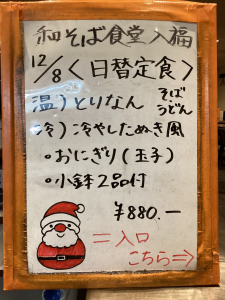 和そば食堂入福
12/8〈日替定食〉
温)とりなん そば うどん
冷)冷やしたぬき風
・おにぎり(玉子)
・小鉢2品付
¥880.ー
=入口
こちら⇒